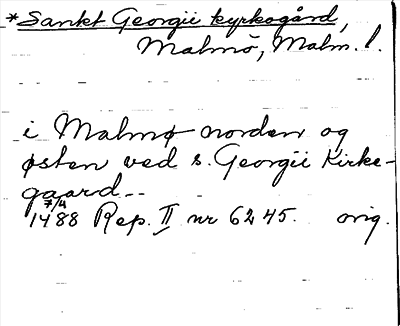 *Sankt Georgii kyrkogård,
Malmö, Malm. l.
i Malmø norden og
østen ved s. Georgii Kirke-
gaard--
7/4
1488 Rep. II nr 6245. orig.